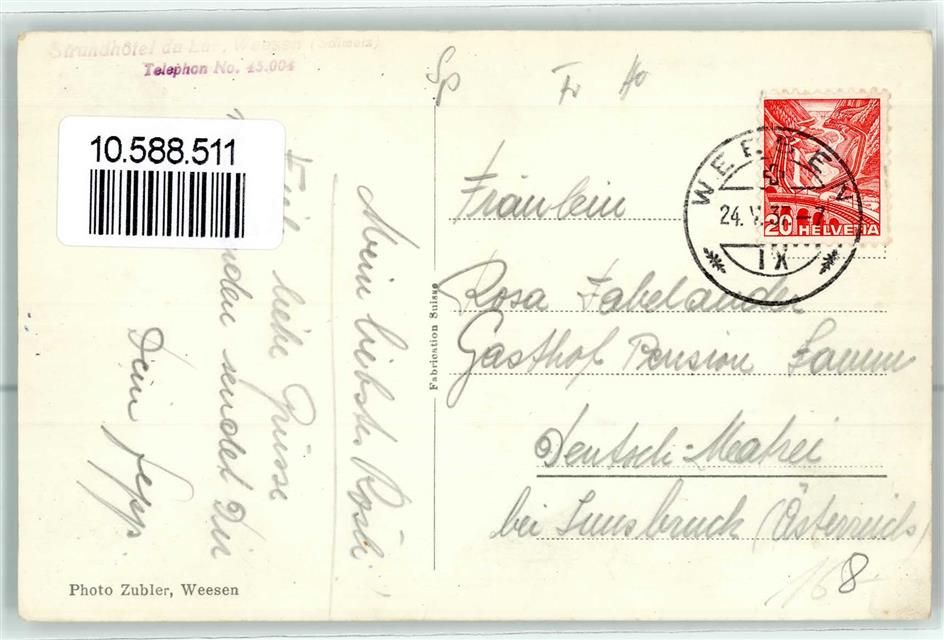 Strandhôtel du Lac, Weesen (Schweiz)
Telephon No. 45.004
10.588.511
Mein liebstes Rösli!
Viele liebe Grüsse
senden sendet Dir
Dein Sepp.
Fabrication Suisse
Photo Zubler, Weesen
Sp Fr Ho
WEESEN
24. V. 37 - 7
IX
20 HELVETIA
Fräulein
Rosa Fabelander
Gasthof Pension Lamm
Deutsch-Matrei
bei Innsbruck (Österreich)
168